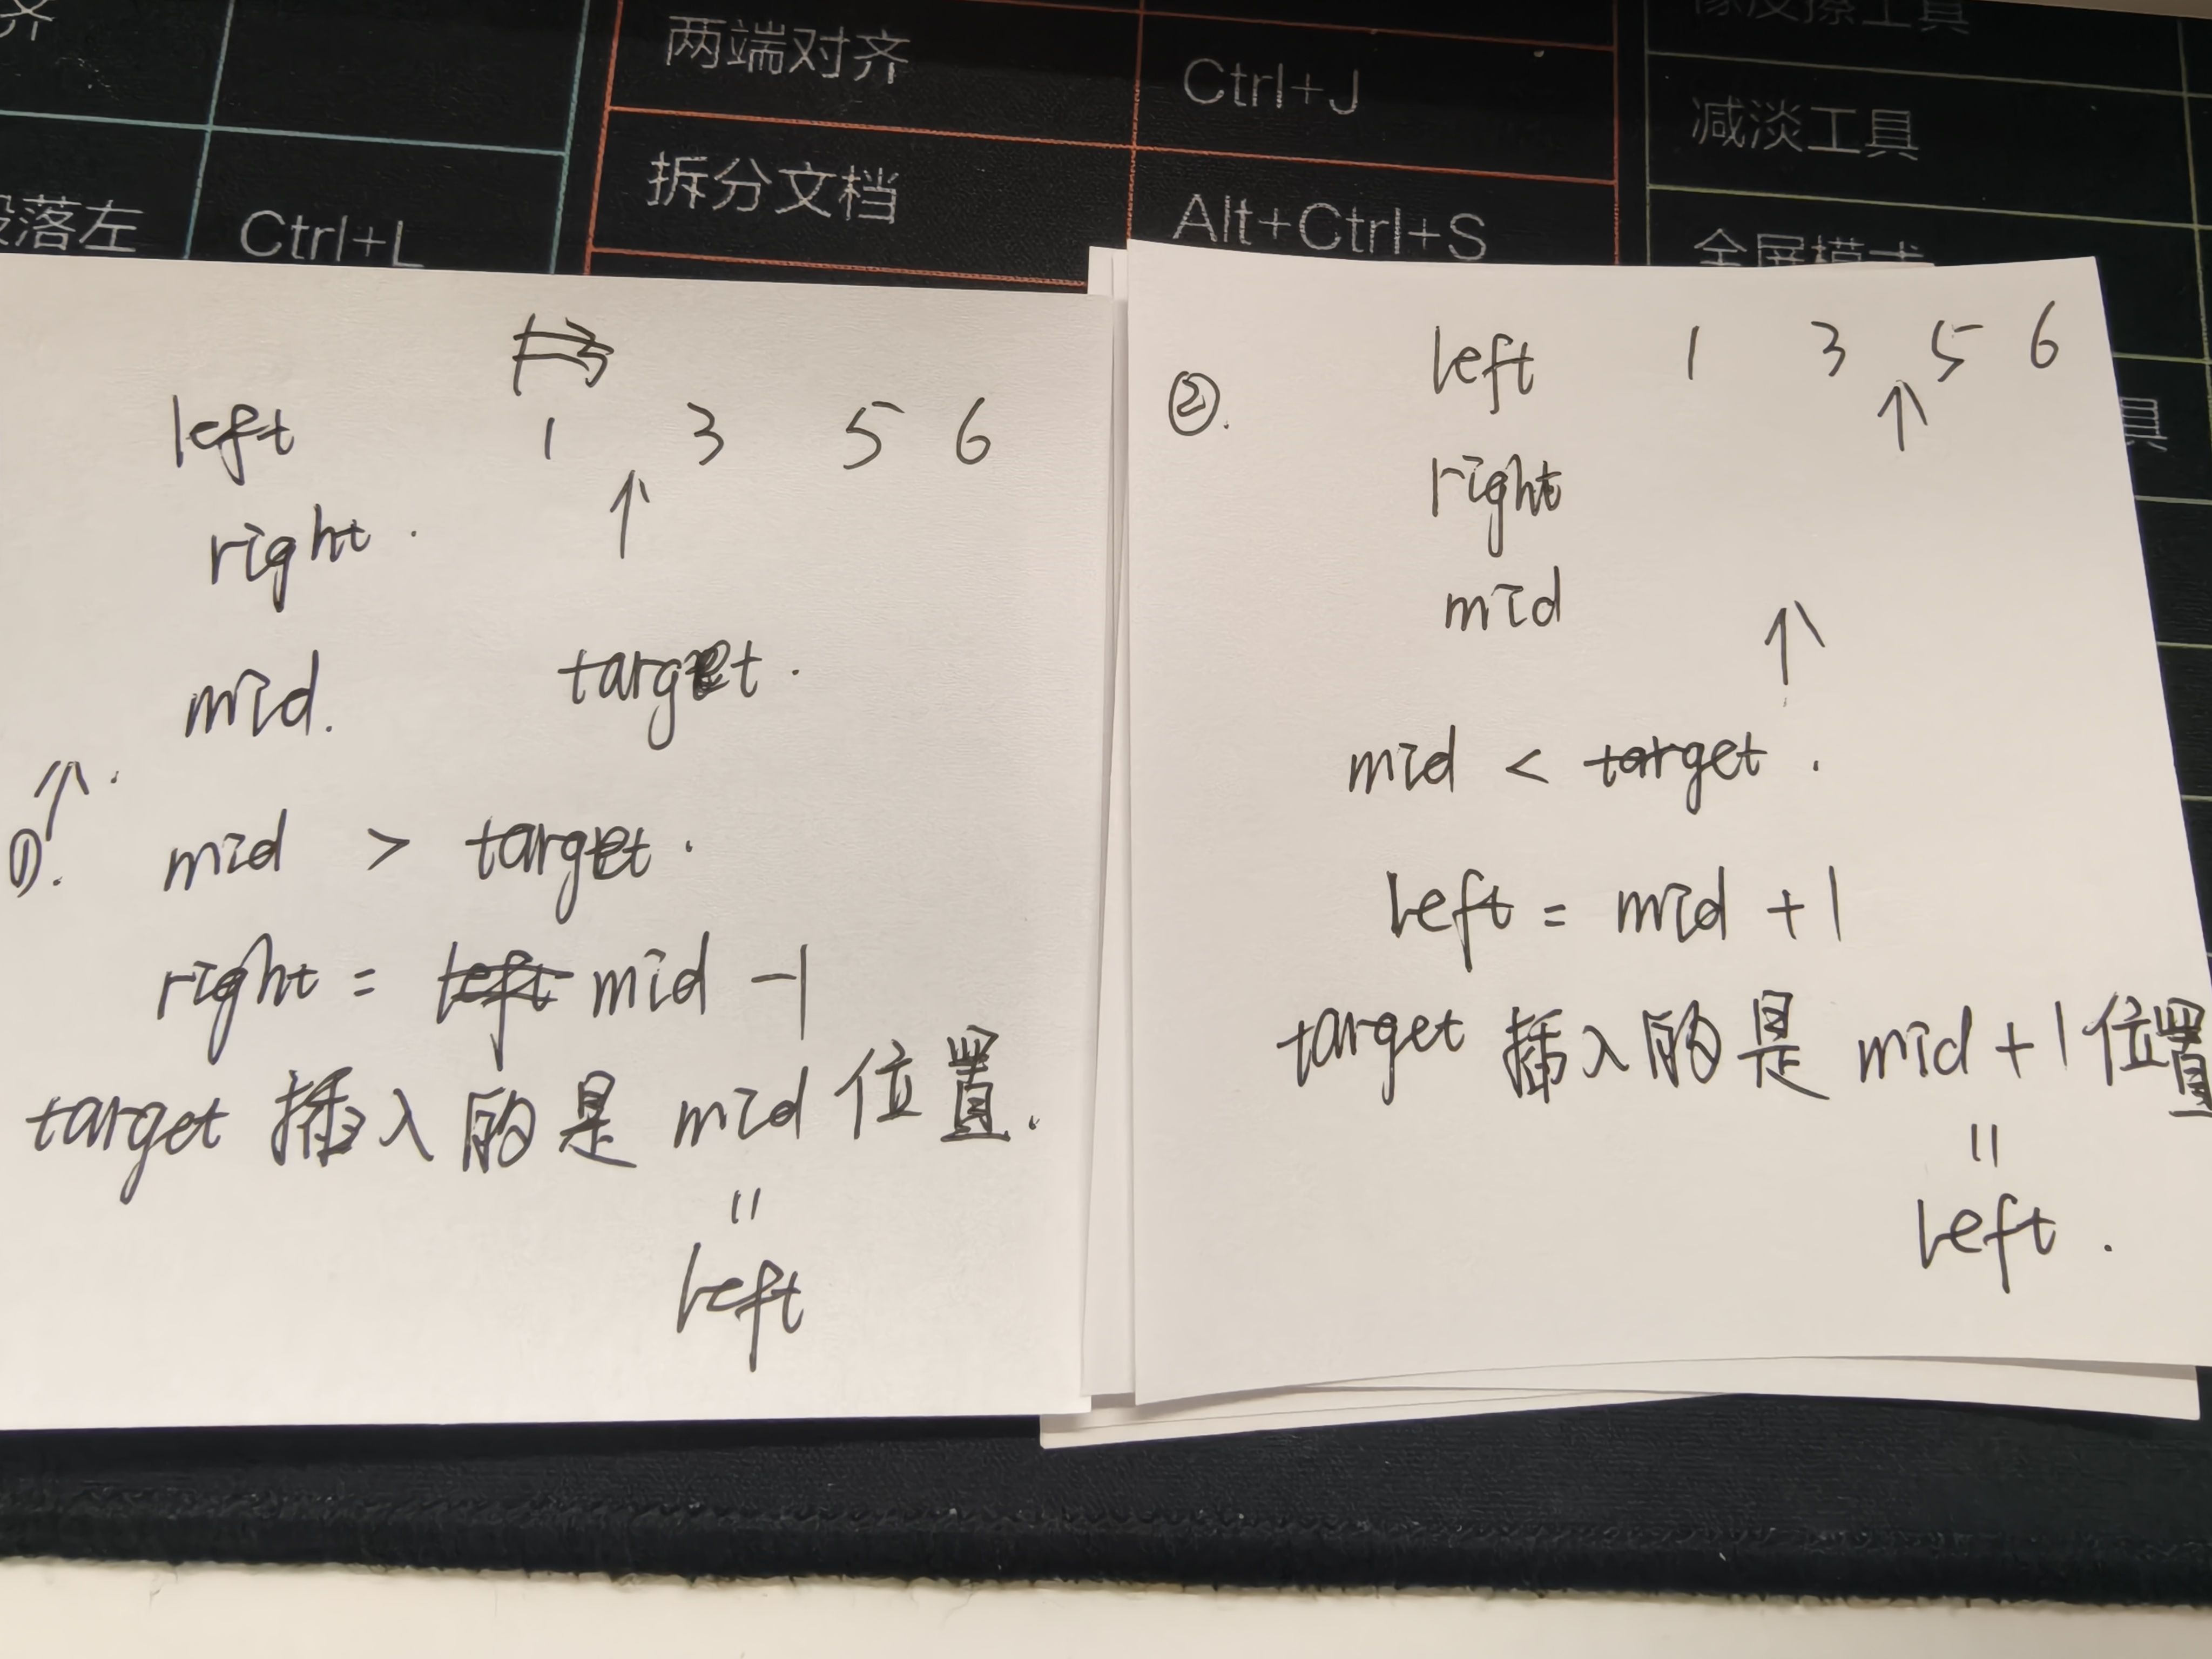 两端对齐 Ctrl+J
减淡工具
拆分文档 Alt+Ctrl+S
落左 Ctrl+L
全屏模式
具
left 1 3 5 6
right .
mid. target .
①. mid > target .
right = left mid -1
target 插入的是 mid 位置.
=
left
②. left 1 3 5 6
right
mid
mid < target .
left = mid +1
target 插入的是 mid +1 位置
=
left .